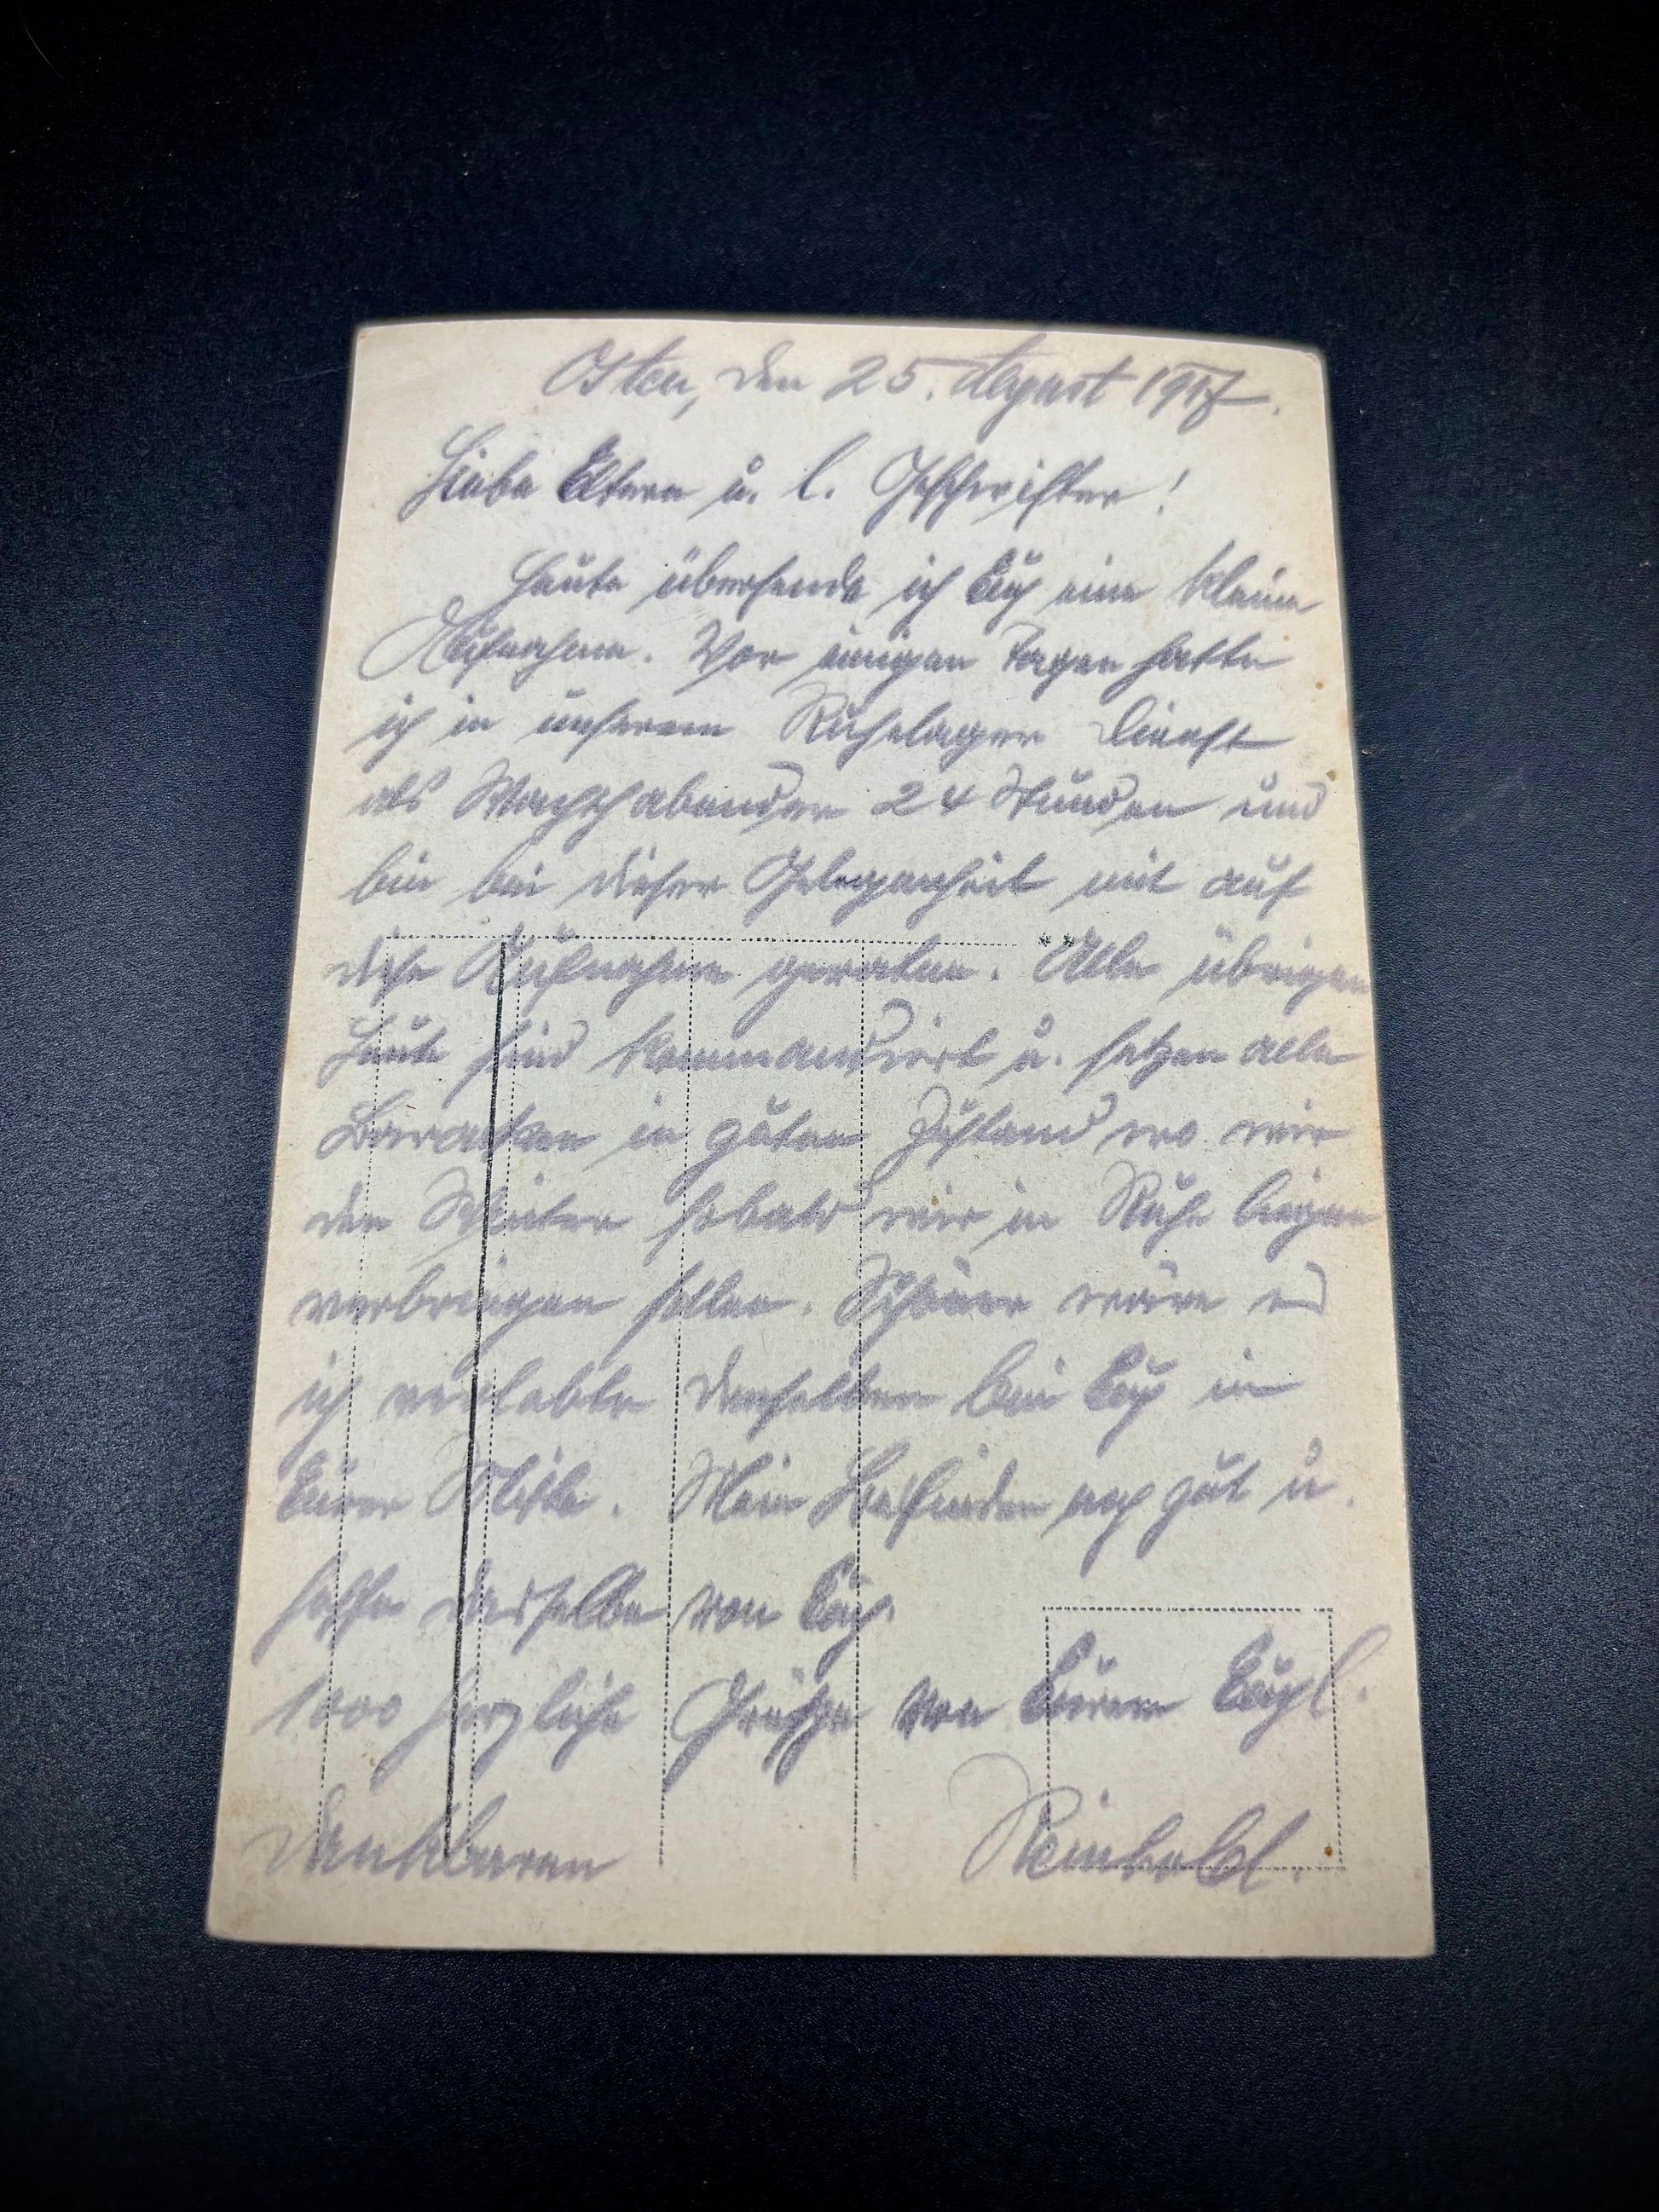 Osten, den 25. August 1917.
Liebe Eltern u. l. Geschwister!
Heute übersende ich Euch eine kleine
Aufnahme. Vor einigen Tagen hatte
ich in unserem Ruhelager Dienst
als Wachthabender 24 Stunden und
bin bei dieser Gelegenheit mit auf
diese Aufnahme geraten. Alle übrigen
Leute sind kommandiert u. setzen alle
Baracken in guten Zustand wo wir
den Winter sobald wir in Ruhe liegen
verbringen sollen. Schöner wäre es
ich verlebte denselben bei Euch in
Eurer Mitte. Mein Befinden noch gut u.
hoffe dasselbe von Euch.
1000 herzliche Grüße von Eurem Euch l.
dankbaren Reinhold.